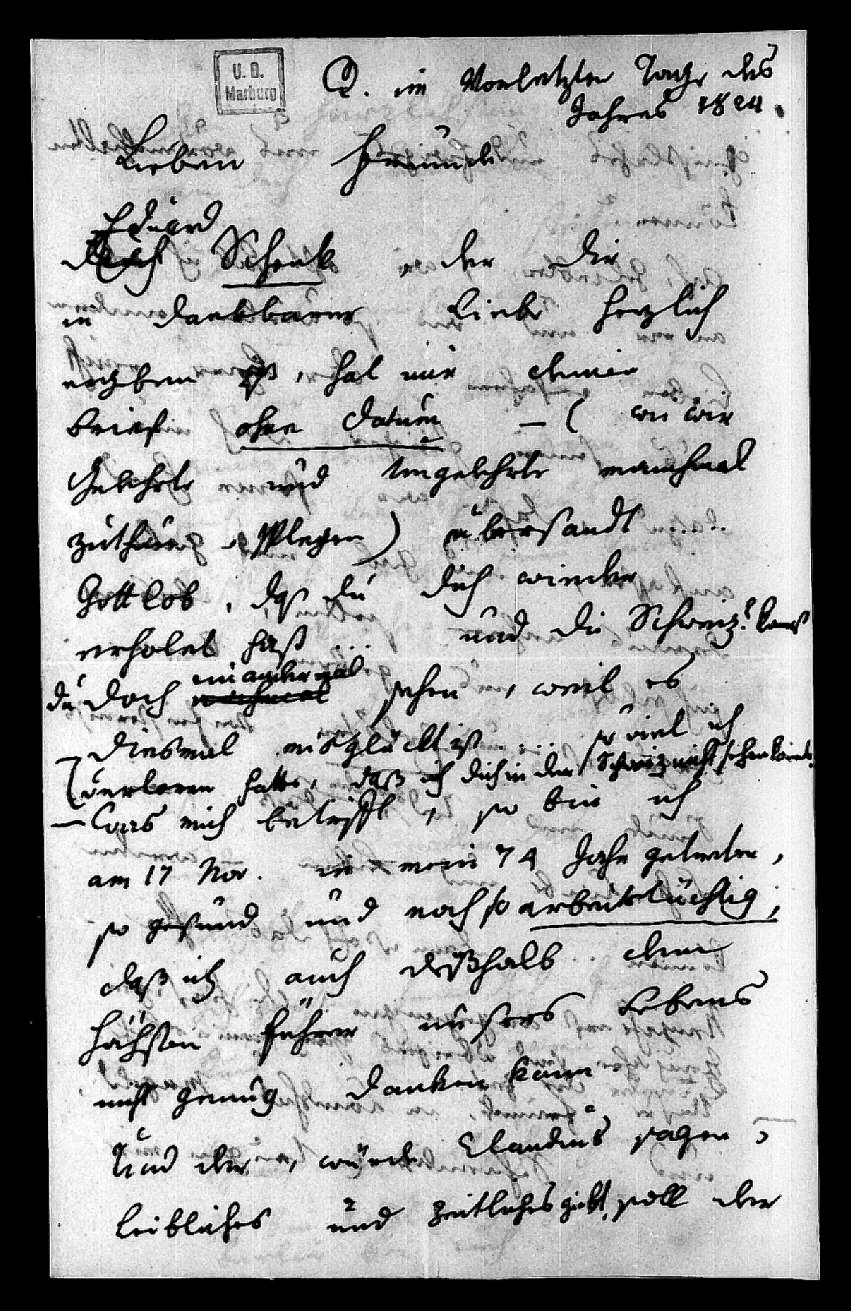 U. B.
Marburg
im vorletzten Tage des
Jahres 1824.
Lieber Freund
Eduard
Schenk der Dir
in dankbarer Liebe herzlich
ergeben ist, hat mir deinen
Brief ohne Datum – ( wie wir
Gelehrte und Ungelehrte manchmal
zuthun pflegen ) übersandt
Gottlob, daß du dich wieder
erholet hast ... und die Schweiz? kanst
du doch ein andermal sehen, weil es
diesmal misglückt ist ... so viel ich
verloren habe, daß ich dich in der Schweiz nicht sehen konnte.
– Was mich betrifft, so bin ich
am 17 Nov. in mein 74 Jahr getreten,
so gesund und noch so arbeitstüchtig,
daß ich auch deßhalb dem
höchsten Führer unsers Lebens
nicht genug danken kann
Und der, würde Claudius sagen,
leibliches und zeitliches gibt, soll der